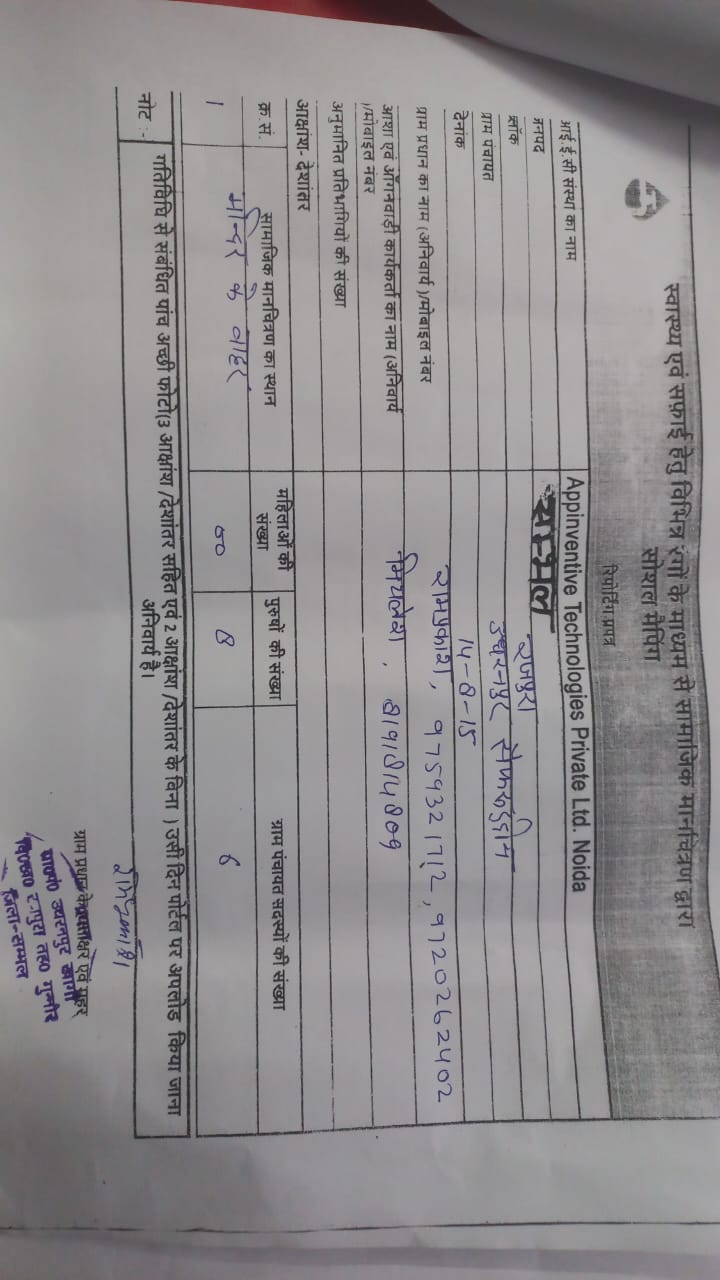 स्वास्थ्य एवं सफाई हेतु विभिन्न रंगों के माध्यम से सामाजिक मानचित्रण द्वारा
सोशल मैपिंग
रिपोर्टिंग प्रपत्र
आई.ई.सी संस्था का नाम Appinventive Technologies Private Ltd. Noida
जनपद सम्भल
ब्लॉक रजपुरा
ग्राम पंचायत
दिनांक 14-8-15
ग्राम प्रधान का नाम (अनिवार्य)/मोबाइल नंबर रामप्रकाश, 9759321712, 9720262402
आशा एवं आँगनवाड़ी कार्यकर्ता का नाम (अनिवार्य
)/मोबाइल नंबर मिथलेश,
अनुमानित प्रतिभागियों की संख्या
आक्षांश- देशांतर
क्र.सं. सामाजिक मानचित्रण का स्थान महिलाओं की संख्या पुरुषों की संख्या ग्राम पंचायत सदस्यों की संख्या
1 मन्दिर के बाहर 8 6
नोट :- गतिविधि से संबंधित पांच अच्छी फोटो(3 आक्षांश /देशांतर सहित एवं 2 आक्षांश /देशांतर के बिना ) उसी दिन पोर्टल पर अपलोड किया जाना
अनिवार्य है।
रामप्रकाश
ग्राम प्रधान के एवं मुहर
जिला-सम्भल